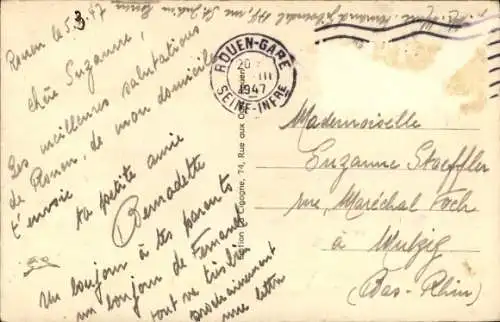 Rouen le 5.3.47
chère Suzanne,
Les meilleures salutations
de Rouen, de mon domicile
t'envoie
ta petite amie
Bernadette
Un bonjour à tes parents
un bonjour de Fernande
tout va très bien
prochainement
une lettre
ROUEN-GARE
20
III
1947
SEINE-INFRE
Cigogne, 74, Rue aux
Mademoiselle
Suzanne Stoeffler
rue, Maréchal Foch
à Mutzig
(Bas-Rhin)